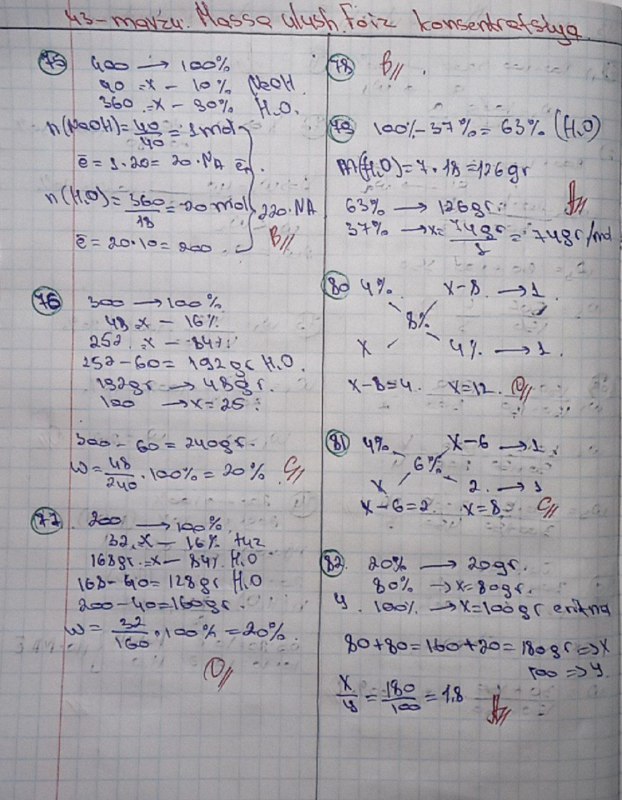 43-mavzu. Massa ulush. Foiz konsentratsiya
75 400 → 100%
40 = x – 10% NaOH
360 = x – 90% H₂O.
n(NaOH) = 40/40 = 1 mol
ē = 1·20 = 20·NA ē
n(H₂O) = 360/18 = 20 mol
220·NA
ē = 20·10 = 200
B//
76 300 → 100%
48 x – 16%
252 x – 84%
252 – 60 = 192 gr H₂O.
192 gr → 48 gr.
100 → x = 25
300 – 60 = 240 gr.
W = 48/240 · 100% = 20% C//
77 200 → 100%
32. x – 16% tuz
168 gr. = x – 84% H₂O
168 – 40 = 128 gr H₂O
200 – 40 = 160 gr.
W = 32/160 · 100% = 20%.
D//
78 B//.
79 100% – 37% = 63% (H₂O)
m(H₂O) = 7·18 = 126 gr
63% → 126 gr. A//
37% → x = 74 gr/1 = 74 gr/mol
80 4% x–8 → 1
8%
x 4% → 1
x–8 = 4 x = 12 D//
81 4% x–6 → 1
6%
x 2 → 1
x–6 = 2 x = 8 C//
82. 20% → 20 gr.
80% → x = 80 gr.
y 100% → x = 100 gr eritma
80 + 80 = 160 + 20 = 180 gr ⇒ x
100 ⇒ y
x/y = 180/100 = 1,8 A//